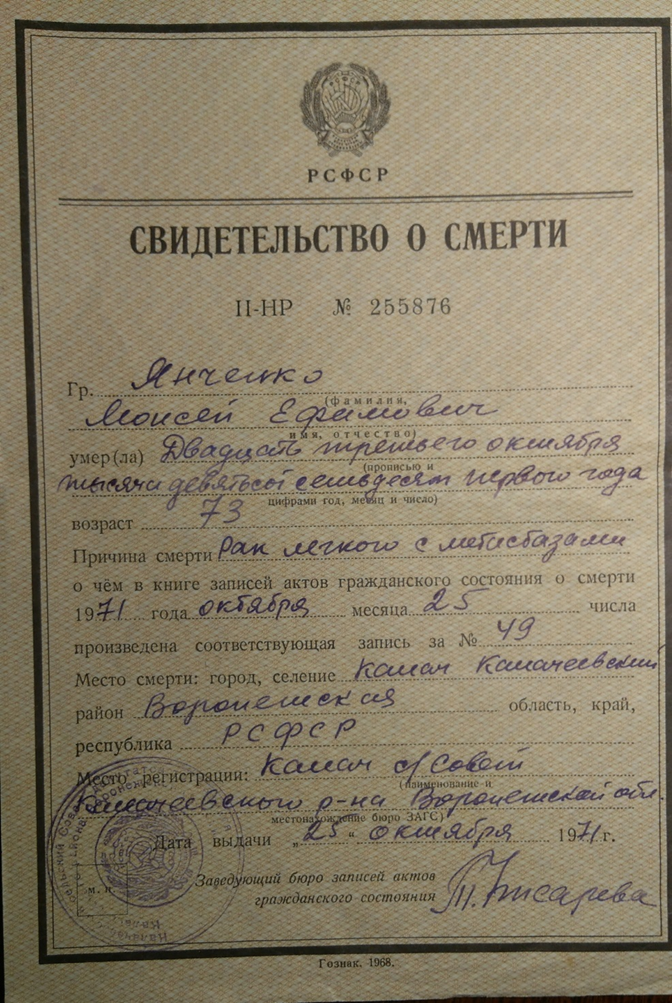 РСФСР
СВИДЕТЕЛЬСТВО О СМЕРТИ
II-НР № 255876
Гр. Янченко
(фамилия,
Моисей Ефимович
имя, отчество)
умер(ла) Двадцать третьего октября
(прописью и
тысяча девятьсот семьдесят первого года
цифрами год, месяц и число)
возраст 73
Причина смерти Рак легкого с метастазами
о чём в книге записей актов гражданского состояния о смерти
1971 года октября месяца 25 числа
произведена соответствующая запись за № 49
Место смерти: город, селение Калач Калачеевский
район Воронежская область, край,
республика РСФСР
Место регистрации: Калач с/Совет
(наименование и
Калачеевского р-на Воронежской обл.
местонахождение бюро ЗАГС)
Дата выдачи „25“ октября 1971 г.
м. п.
Заведующий бюро записей актов
гражданского состояния Т. Писарева
Гознак. 1968.